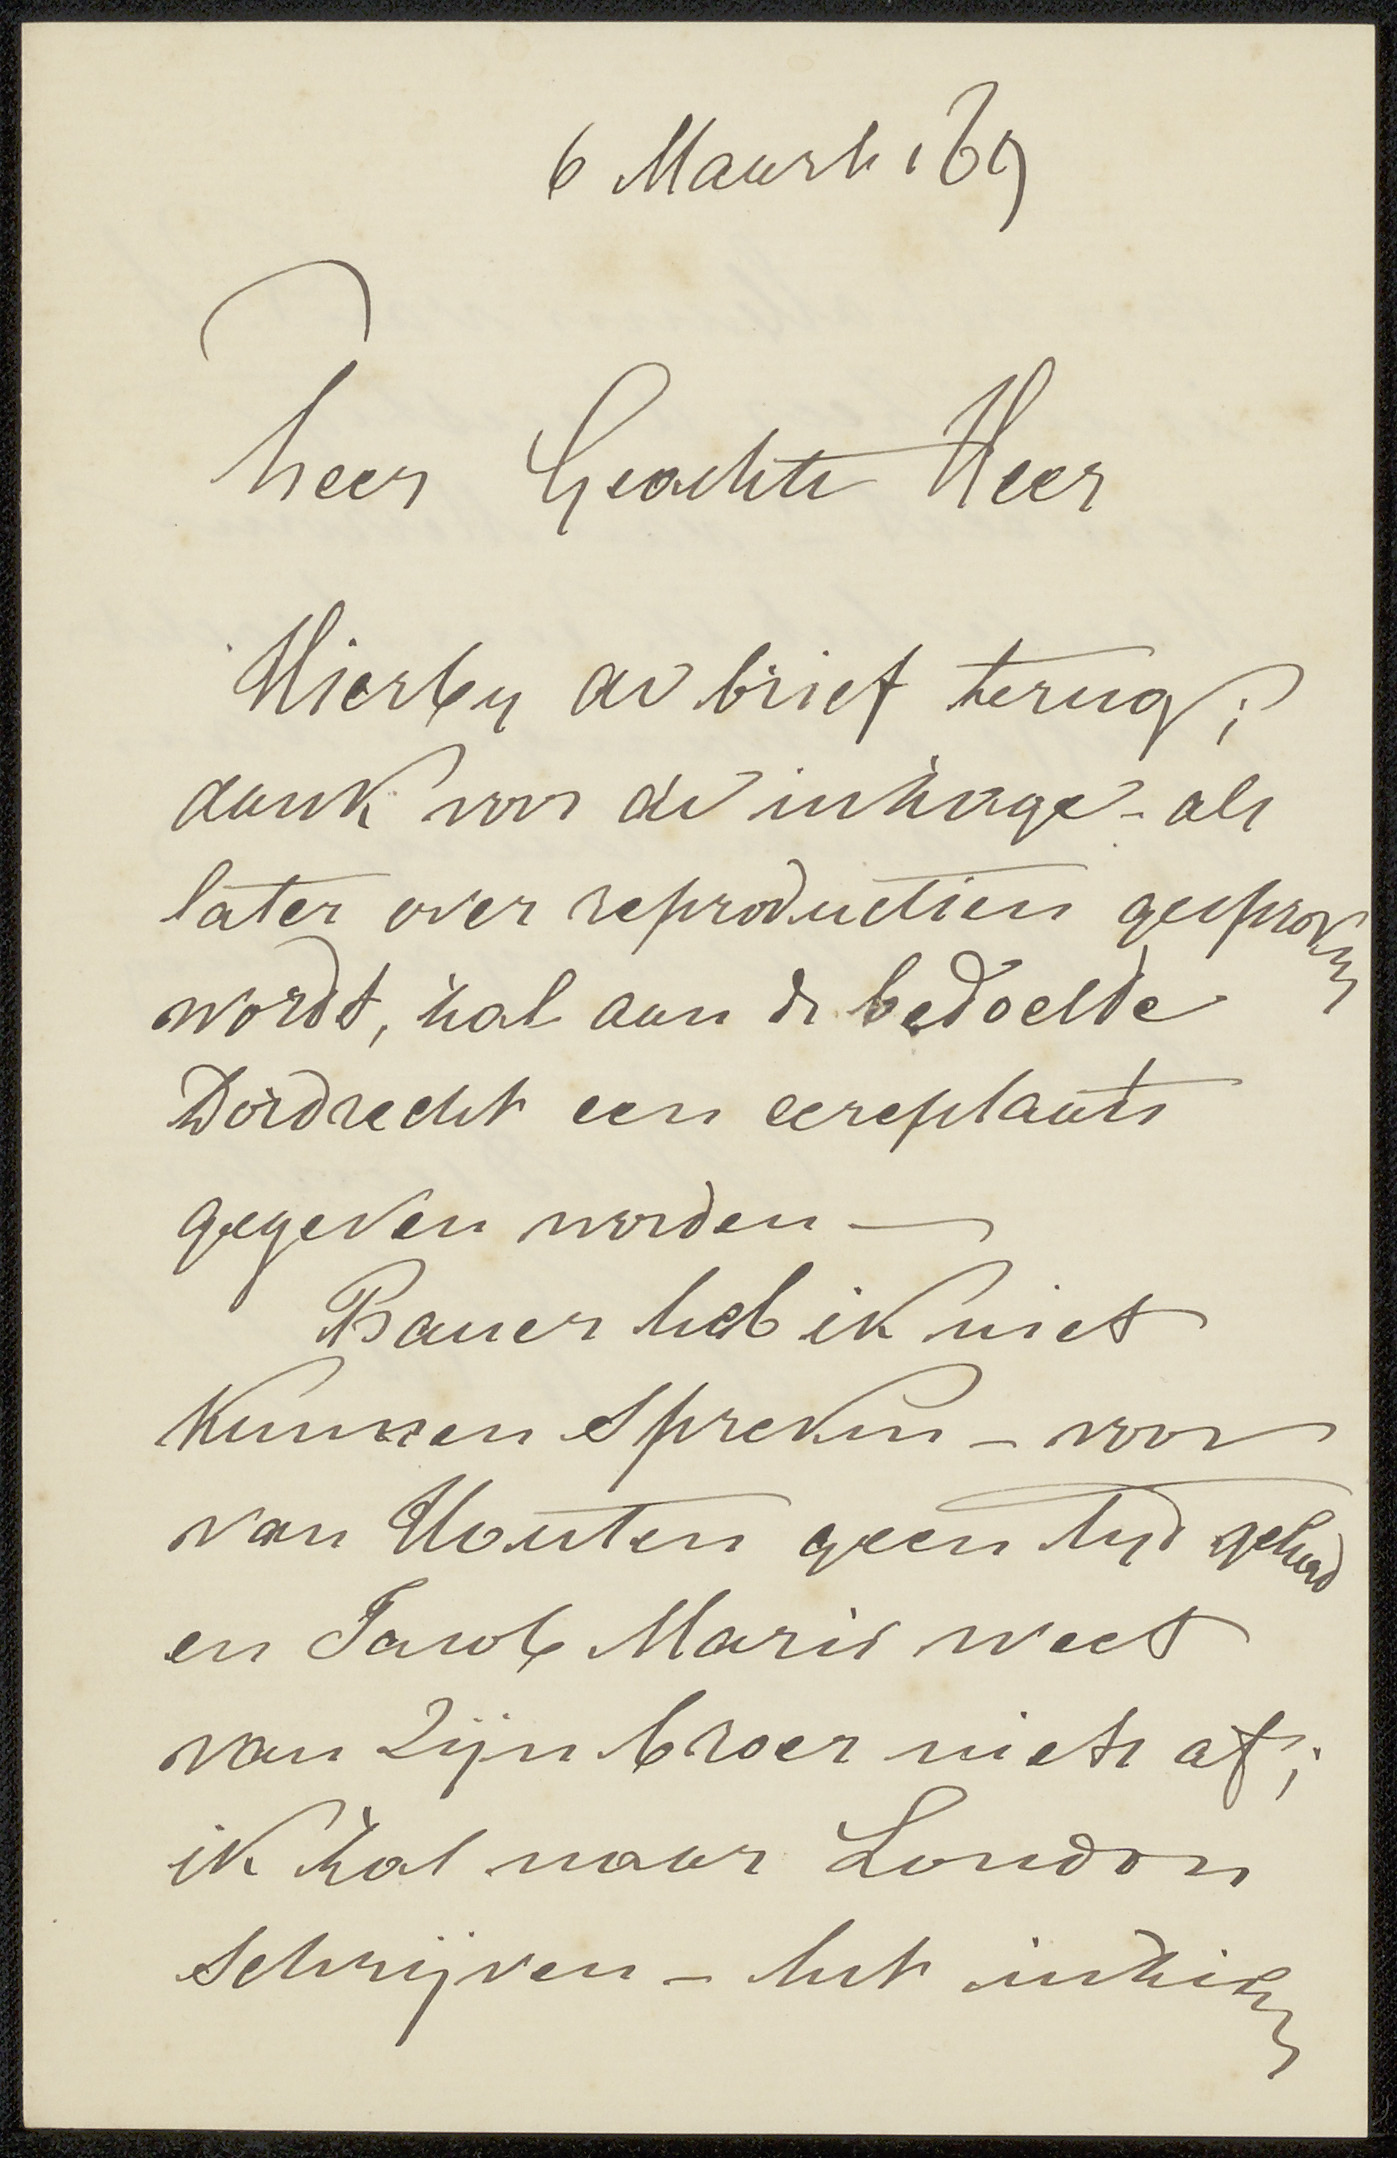 6 Maart
Zeer Geachte Heer
Hierby de brief terug;
dank voor de inzage - als
later over reproductien gesproken
wordt, zal aan de bedoelde
Dordrecht een eereplaats
gegeven worden —
Bauer heb ik niet
kunnen spreken - voor
van Houten geen tyd gehad
en Jacob Maris weet
van zijn broer niets af;
ik zal naar London
schrijven - het indien